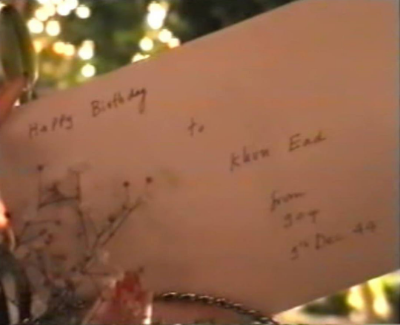 Happy Birthday
to
Khun Ead
from
goy
9th Dec 44